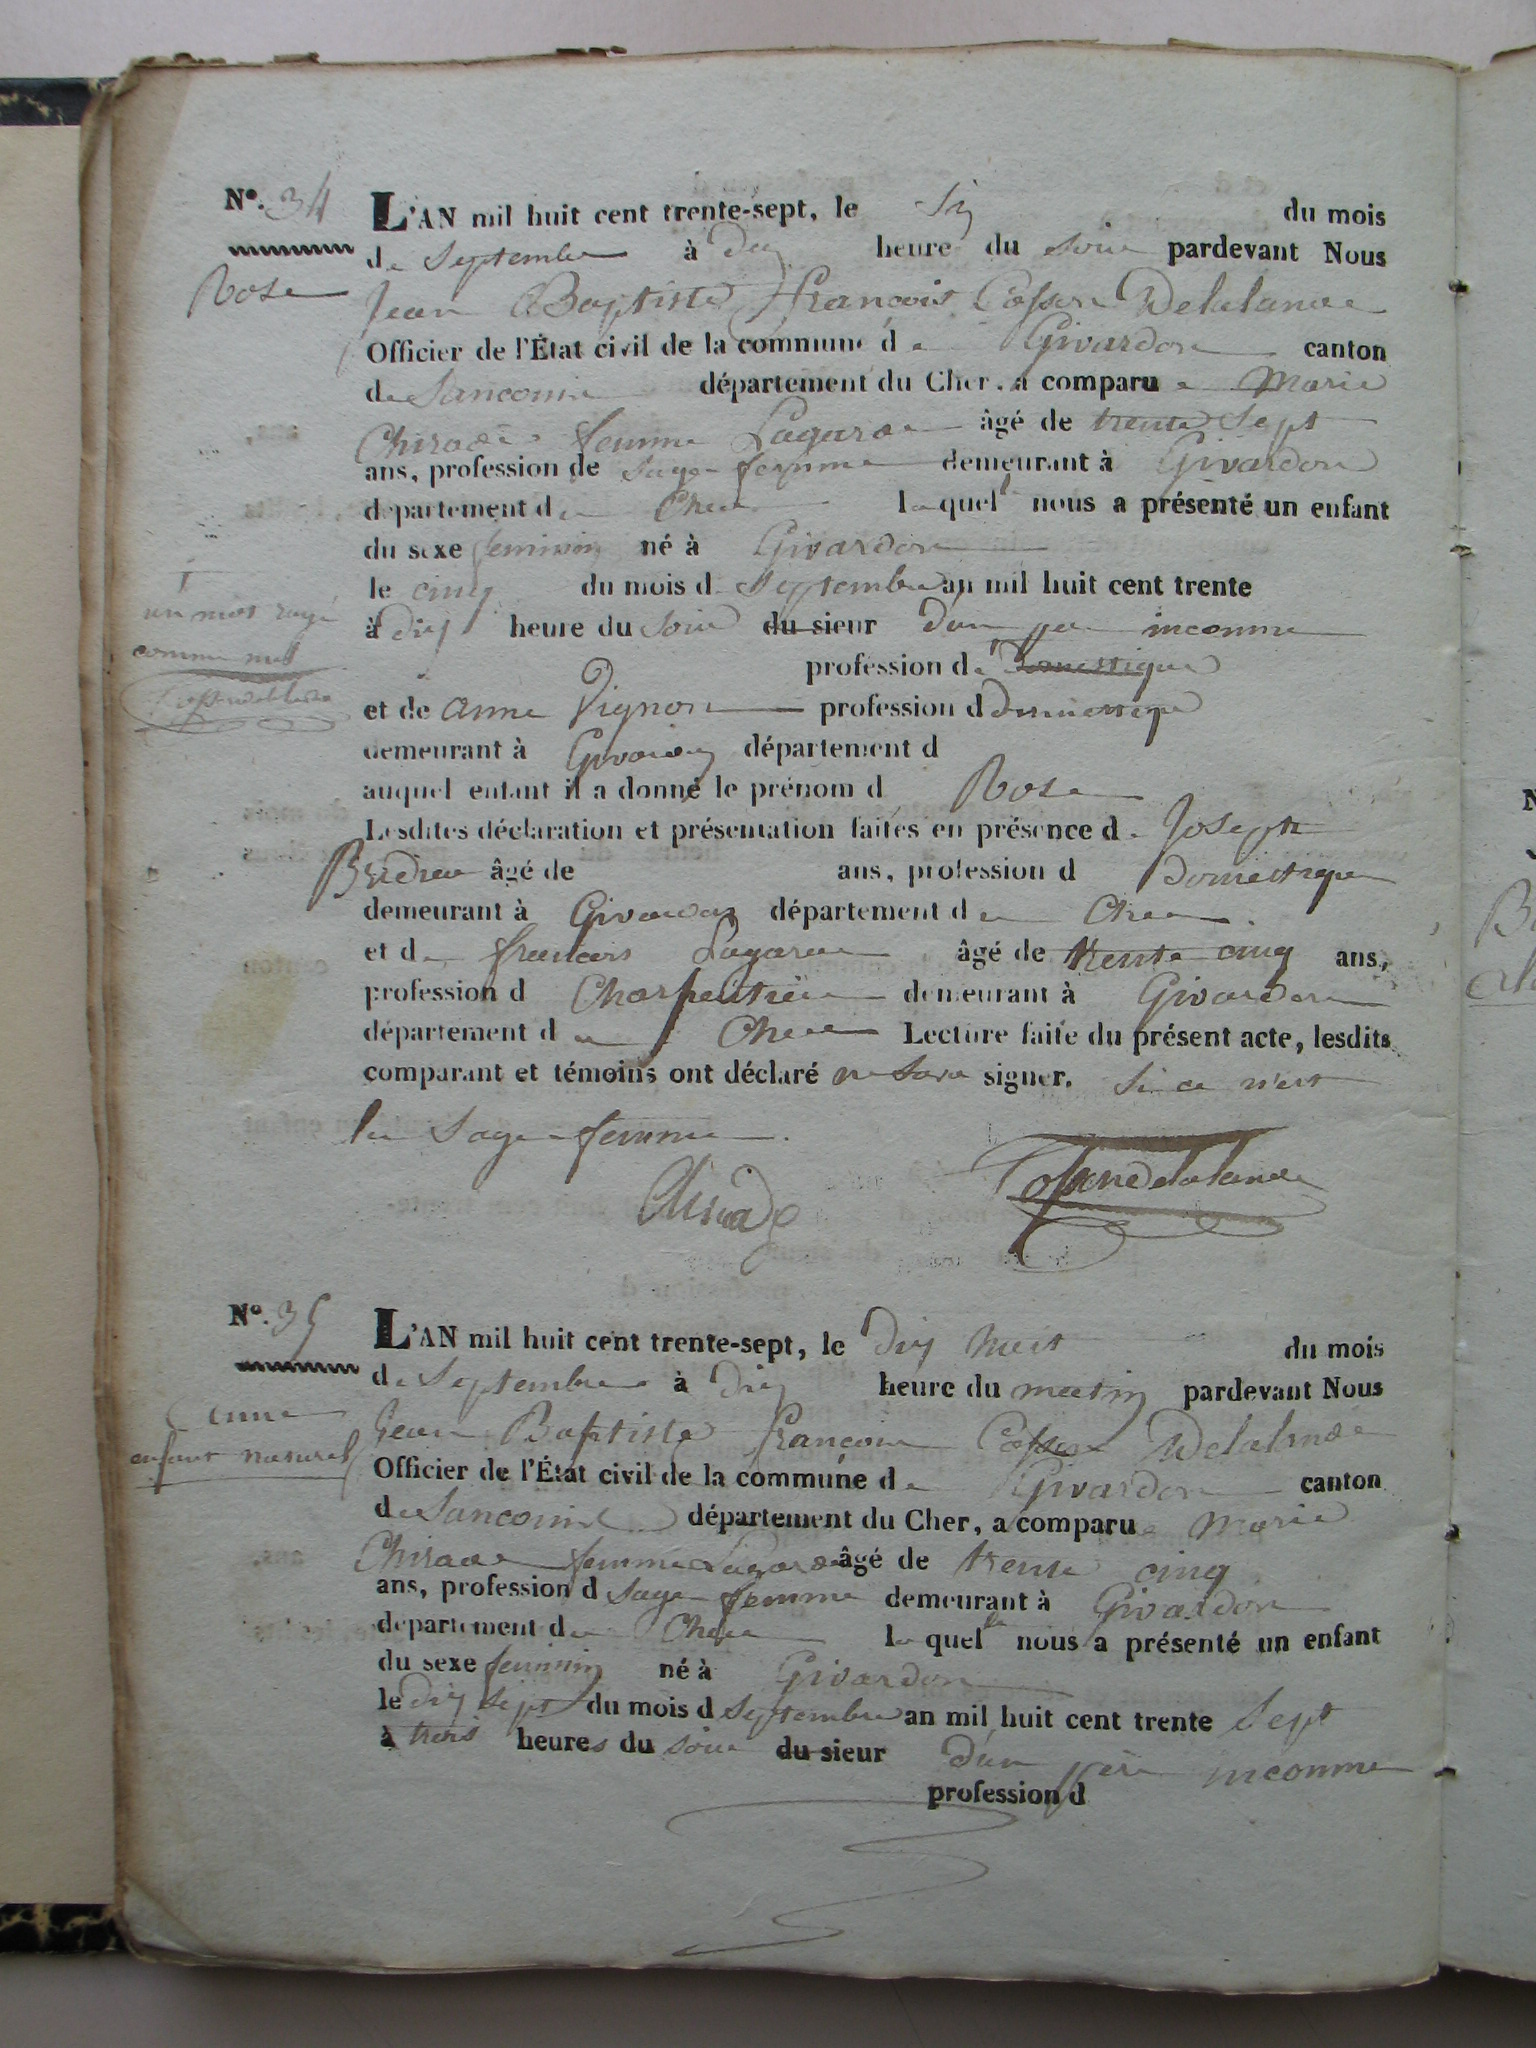 N°. 34
L'AN mil huit cent trente-sept, le Six du mois
de Septembre à dix heure du soir pardevant Nous
Rose
Jean Baptiste françois Cosson Delalande
Officier de l'État civil de la commune de Givardon canton
de Sancoins département du Cher, a comparu e Marie
Chirade femme Lagarde âgé de trente Sept
ans, profession de Sage femme demeurant à Givardon
département de Cher laquelle nous a présenté un enfant
du sexe feminin né à Givardon
le cinq du mois de Septembre an mil huit cent trente
un mot rayé
à dix heure du soir du sieur d'un père inconnu
comme nul
profession de Domestique
Cossondelalande
et de anne Vignon profession d Domestique
demeurant à Givardon département d
auquel enfant il a donné le prénom d Rose
Lesdites déclaration et présentation faites en présence de Joseph
âgé de ans, profession d Domestique
demeurant à Givardon département de Cher
et de francois Lagarde âgé de trente cinq ans,
profession d Charpentier demeurant à Givardon
département de Cher Lecture faite du présent acte, lesdits
comparant et témoins ont déclaré ne savoir signer. Si ce n'est
la Sage femme
Chirade Cossondelalande
N°. 35
L'AN mil huit cent trente-sept, le Dix huit du mois
de Septembre à dix heure du matin pardevant Nous
anne
Jean Baptiste françois Cosson Delalande
enfant naturel
Officier de l'État civil de la commune de Givardon canton
de Sancoins département du Cher, a comparu e Marie
Chirade femme Lagarde âgé de trente cinq
ans, profession d Sage femme demeurant à Givardon
département de Cher laquelle nous a présenté un enfant
du sexe feminin né à Givardon
le dix sept du mois d Septembre an mil huit cent trente Sept
à trois heures du soir du sieur d'un père inconnu
profession d